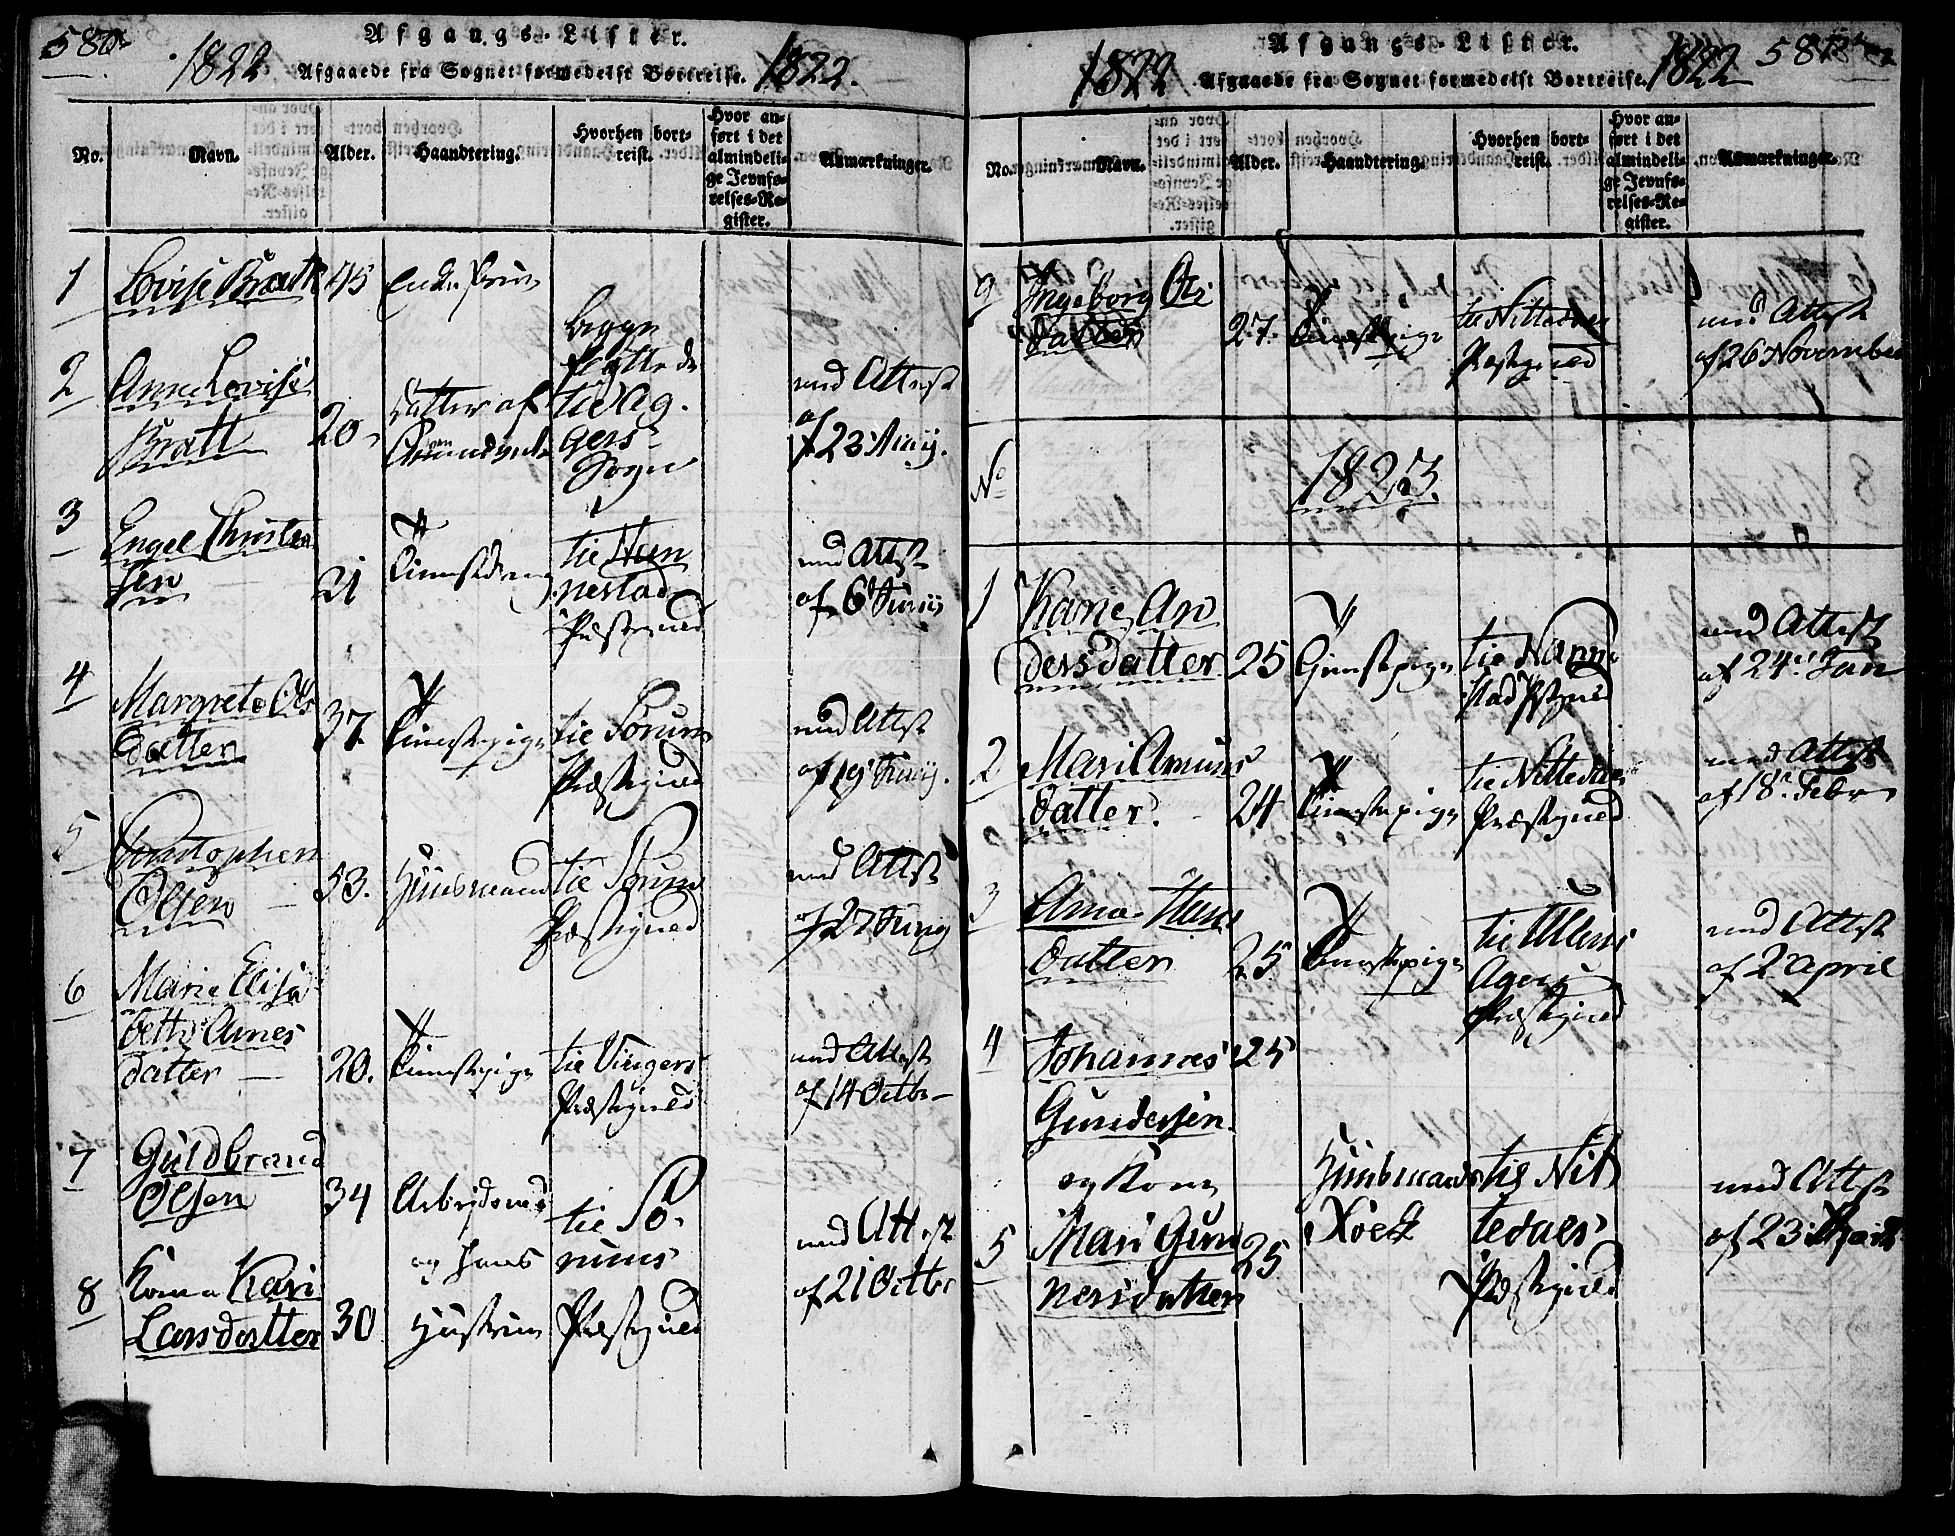 580
Afgangs-Lister.
1822
Afgaaede fra Sognet formedelst Bortreise.
1822.
No.
Navn.
Alder.
Haandtering.
Hvorhen bortreist.
Hvor anført i det almindelige Jevnførelses-Register.
Anmærkninger.
1
Lovise Bratt
45
2
Anne Lovise
Bratt
20
Datter af
begge
flyttede
til Ag-
gers
Sogn
med Attest
af 23 Maij.
3
Engel Christen
sen
21
Tienestedreng
til Nen
nestad
Præstegield
med Attest
af 6 Junij
4
Margrete Ols
datter
37.
Tienestepige
til Sørum
Præstegield
med Attest
af 19 Junij.
5
Christopher
Olsen
53.
Huusmand
til Sørum
Præstegield
med Attest
af 27 Junij
6
Marie Elisa
beth Arnes
datter
20.
Tienestepige
til Vingers
Præstegield
med Attest
af 14 Octbr
7
Guldbrand
Olsen
34
og hans
til Sø-
rums
Præstegield
med Attest
af 21 Octbr
8
Kone Kari
Larsdatter
30
Hustrue
Afgangs-Lister.
581
1822
Afgaaede fra Sognet formedelst Bortreise.
1822
No.
Navn.
Alder.
Haandtering.
Hvorhen bortreist.
Hvor anført i det almindelige Jevnførelses-Register.
Anmærkninger.
9
Ingeborg Ols
datter
27.
Tienestepige
til Nittedals
Præstegield
med Attest
af 26 November
No
1823.
1
Kane An
dersdatter
25
Tienestepige
til Nanne
stad Præstegield
med Attest
af 24 Jan
2
Mari Amunds
datter.
24
Tienestepige
til Nittedals
Præstegield
med Attest
af 18 Febr
3
Anna Hans
datter
25
Tienestepige
til Ullens
Agers
Præstegield
med Attest
af 2 april
4
Johannes
25
Gundersen
og Kone
Huusmands
til Nit
tedals
Præstegield
med Attest
af 23
5
Mari Gun
nersdatter
25